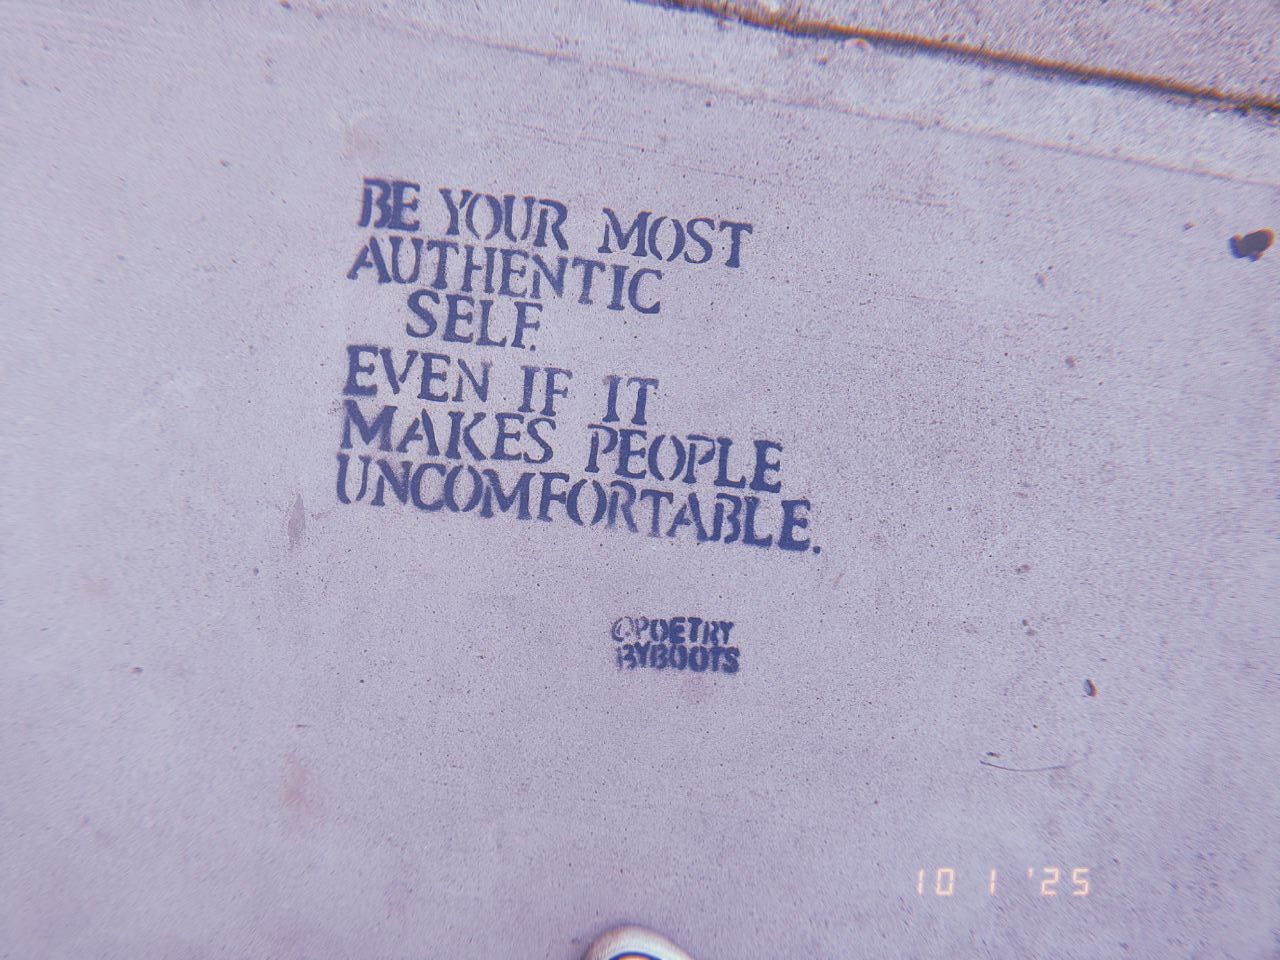 BE YOUR MOST
AUTHENTIC
SELF.
EVEN IF IT
MAKES PEOPLE
UNCOMFORTABLE.
@POETRY
BYBOOTS
10 1 '25